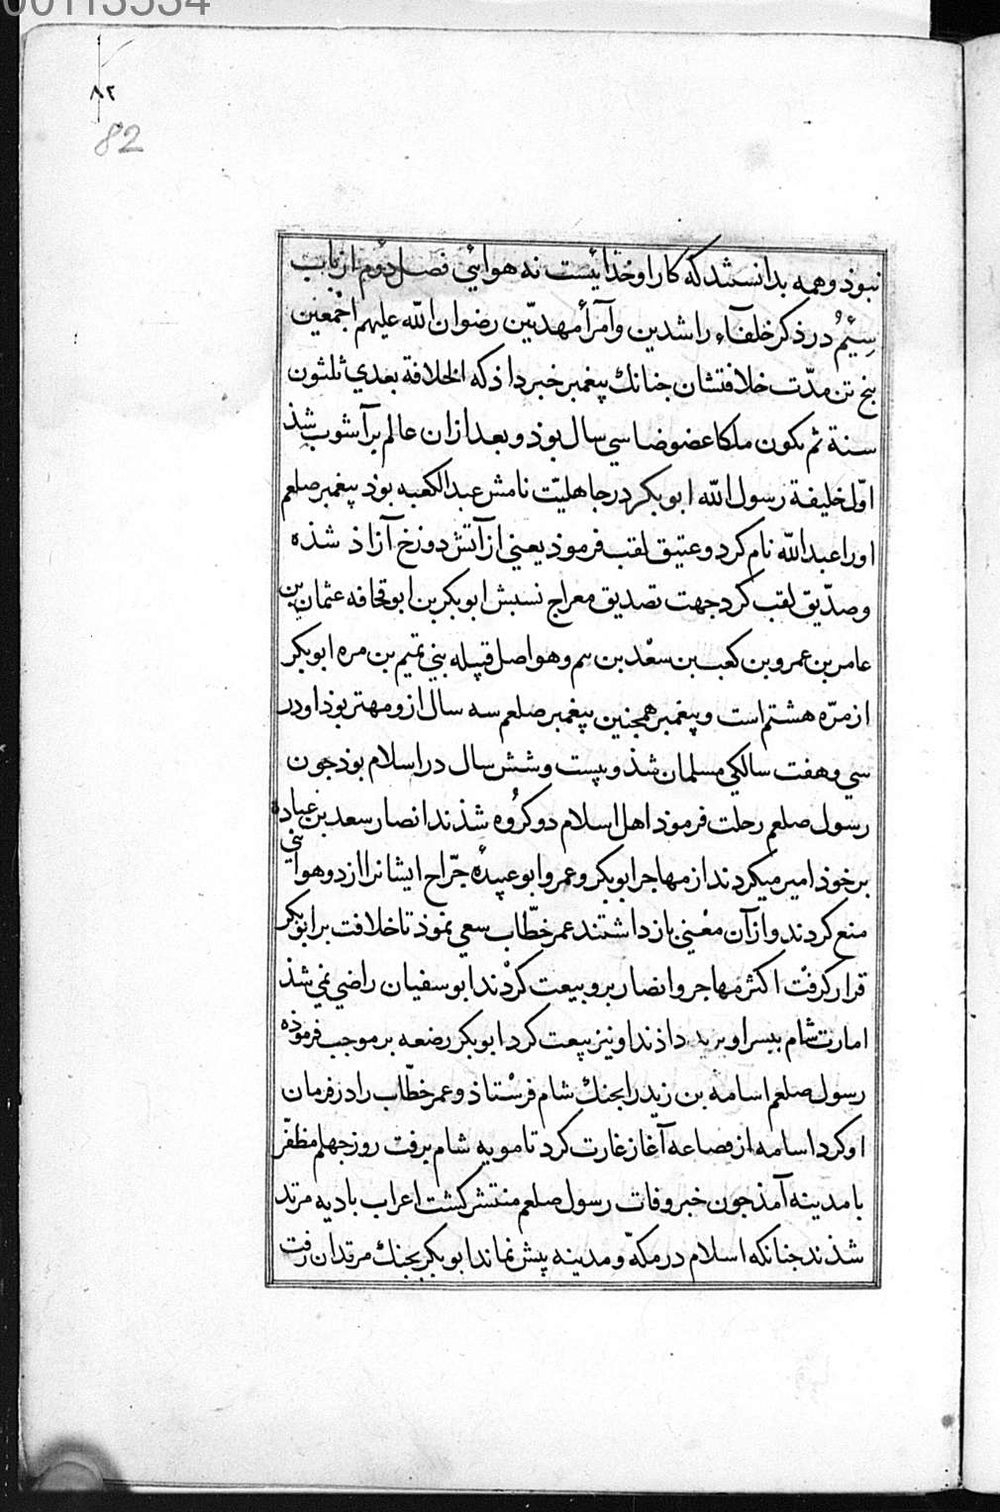 00113534
٨٢
82
نبوذ وهمه بدانستند که کار او خذائیست نه هوائی فصل دوم از باب
سیُّم در ذکر خلفآء راشدین وآمرآ مهدیّین رضوان الله علیهم اجمعین
پنج تن مدّت خلافتشان جنانك پیغمبر خبر داذ که الخلافة بعدي ثلثون
سنة ثم یکون ملکا عضوضا سي سال بوذ و بعد ازان عالم برآشوب شذ
اوّل خلیفة رسول الله ابو بکر در جاهلیّت نامش عبد الکعبه بوذ پیغمبر صلعم
اورا عبد الله نام کرد و عتیق لقب فرموذ یعني از آتش دوزخ آزاذ شذه
وصدّیق لقب کرد جهت تصدیق معراج نسبش ابو بکر بن ابو قحافه عثمان بن
عامر بن عمرو بن کعب بن سعد بن یتم وهو اصل قبیله بني تمیم بن مره ابو بکر
از مرّه هشتم است وپیغمبر همجنین پیغمبر صلعم سه سال ازو مهتر بوذ او در
سي وهفت سالکي مسلمان شذ وبیست وشش سال در اسلام بوذ جون
رسول صلعم رحلت فرموذ اهل اسلام دو کروه شذند انصار سعد بن عباده
بر خوذ امیر میکردند از مهاجر ابو بکر و عمر و ابو عبیده جرّاح ایشانرا از دو هوائي
منع کردند و از آن معني بازداشتند عمر خطّاب سعي نموذ تا خلافت بر ابو بکر
قرار کرفت اکثر مهاجر و انصار برو بیعت کردند ابو سفیان راضي نمي شذ
امارت شام بپسر او یزید داذند او نیز بیعت کرد ابو بکر رضعه بر موجب فرموذه
رسول صلعم اسامه بن زید را بجنك شام فرستاذ و عمر خطّاب را در فرمان
او کرد اسامه از قصاعه آغاز غارت کرد تا موبه شام برفت روز جهلم مظفّر
با مدینه آمذ جون خبر وفات رسول صلعم منتشر کشت اعراب بادیه مرتد
شذند جنانکه اسلام در مکّه و مدینه پیش نماند ابو بکر بجنك مرتدان رفت